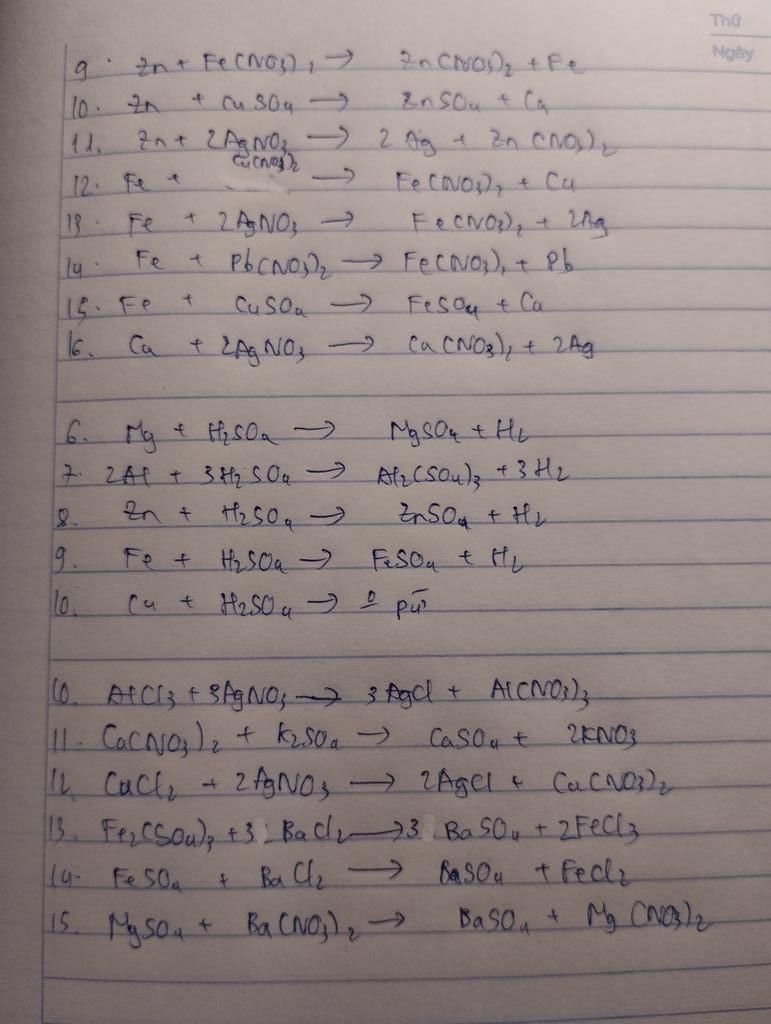 Thứ
Ngày
9. Zn + Fe(NO3)2 → Zn(NO3)2 + Fe
10. Zn + CuSO4 → ZnSO4 + Cu
11. Zn + 2AgNO3 → 2Ag + Zn(NO3)2
12. Fe + Cu(NO3)2 → Fe(NO3)2 + Cu
13. Fe + 2AgNO3 → Fe(NO3)2 + 2Ag
14. Fe + Pb(NO3)2 → Fe(NO3)2 + Pb
15. Fe + CuSO4 → FeSO4 + Cu
16. Cu + 2AgNO3 → Cu(NO3)2 + 2Ag
6. Mg + H2SO4 → MgSO4 + H2
7. 2Al + 3H2SO4 → Al2(SO4)3 + 3H2
8. Zn + H2SO4 → ZnSO4 + H2
9. Fe + H2SO4 → FeSO4 + H2
10. Cu + H2SO4 → 0 pứ
10. AlCl3 + 3AgNO3 → 3AgCl + Al(NO3)3
11. Ca(NO3)2 + K2SO4 → CaSO4 + 2KNO3
12. CuCl2 + 2AgNO3 → 2AgCl + Cu(NO3)2
13. Fe2(SO4)3 + 3BaCl2 → 3BaSO4 + 2FeCl3
14. FeSO4 + BaCl2 → BaSO4 + FeCl2
15. MgSO4 + Ba(NO3)2 → BaSO4 + Mg(NO3)2